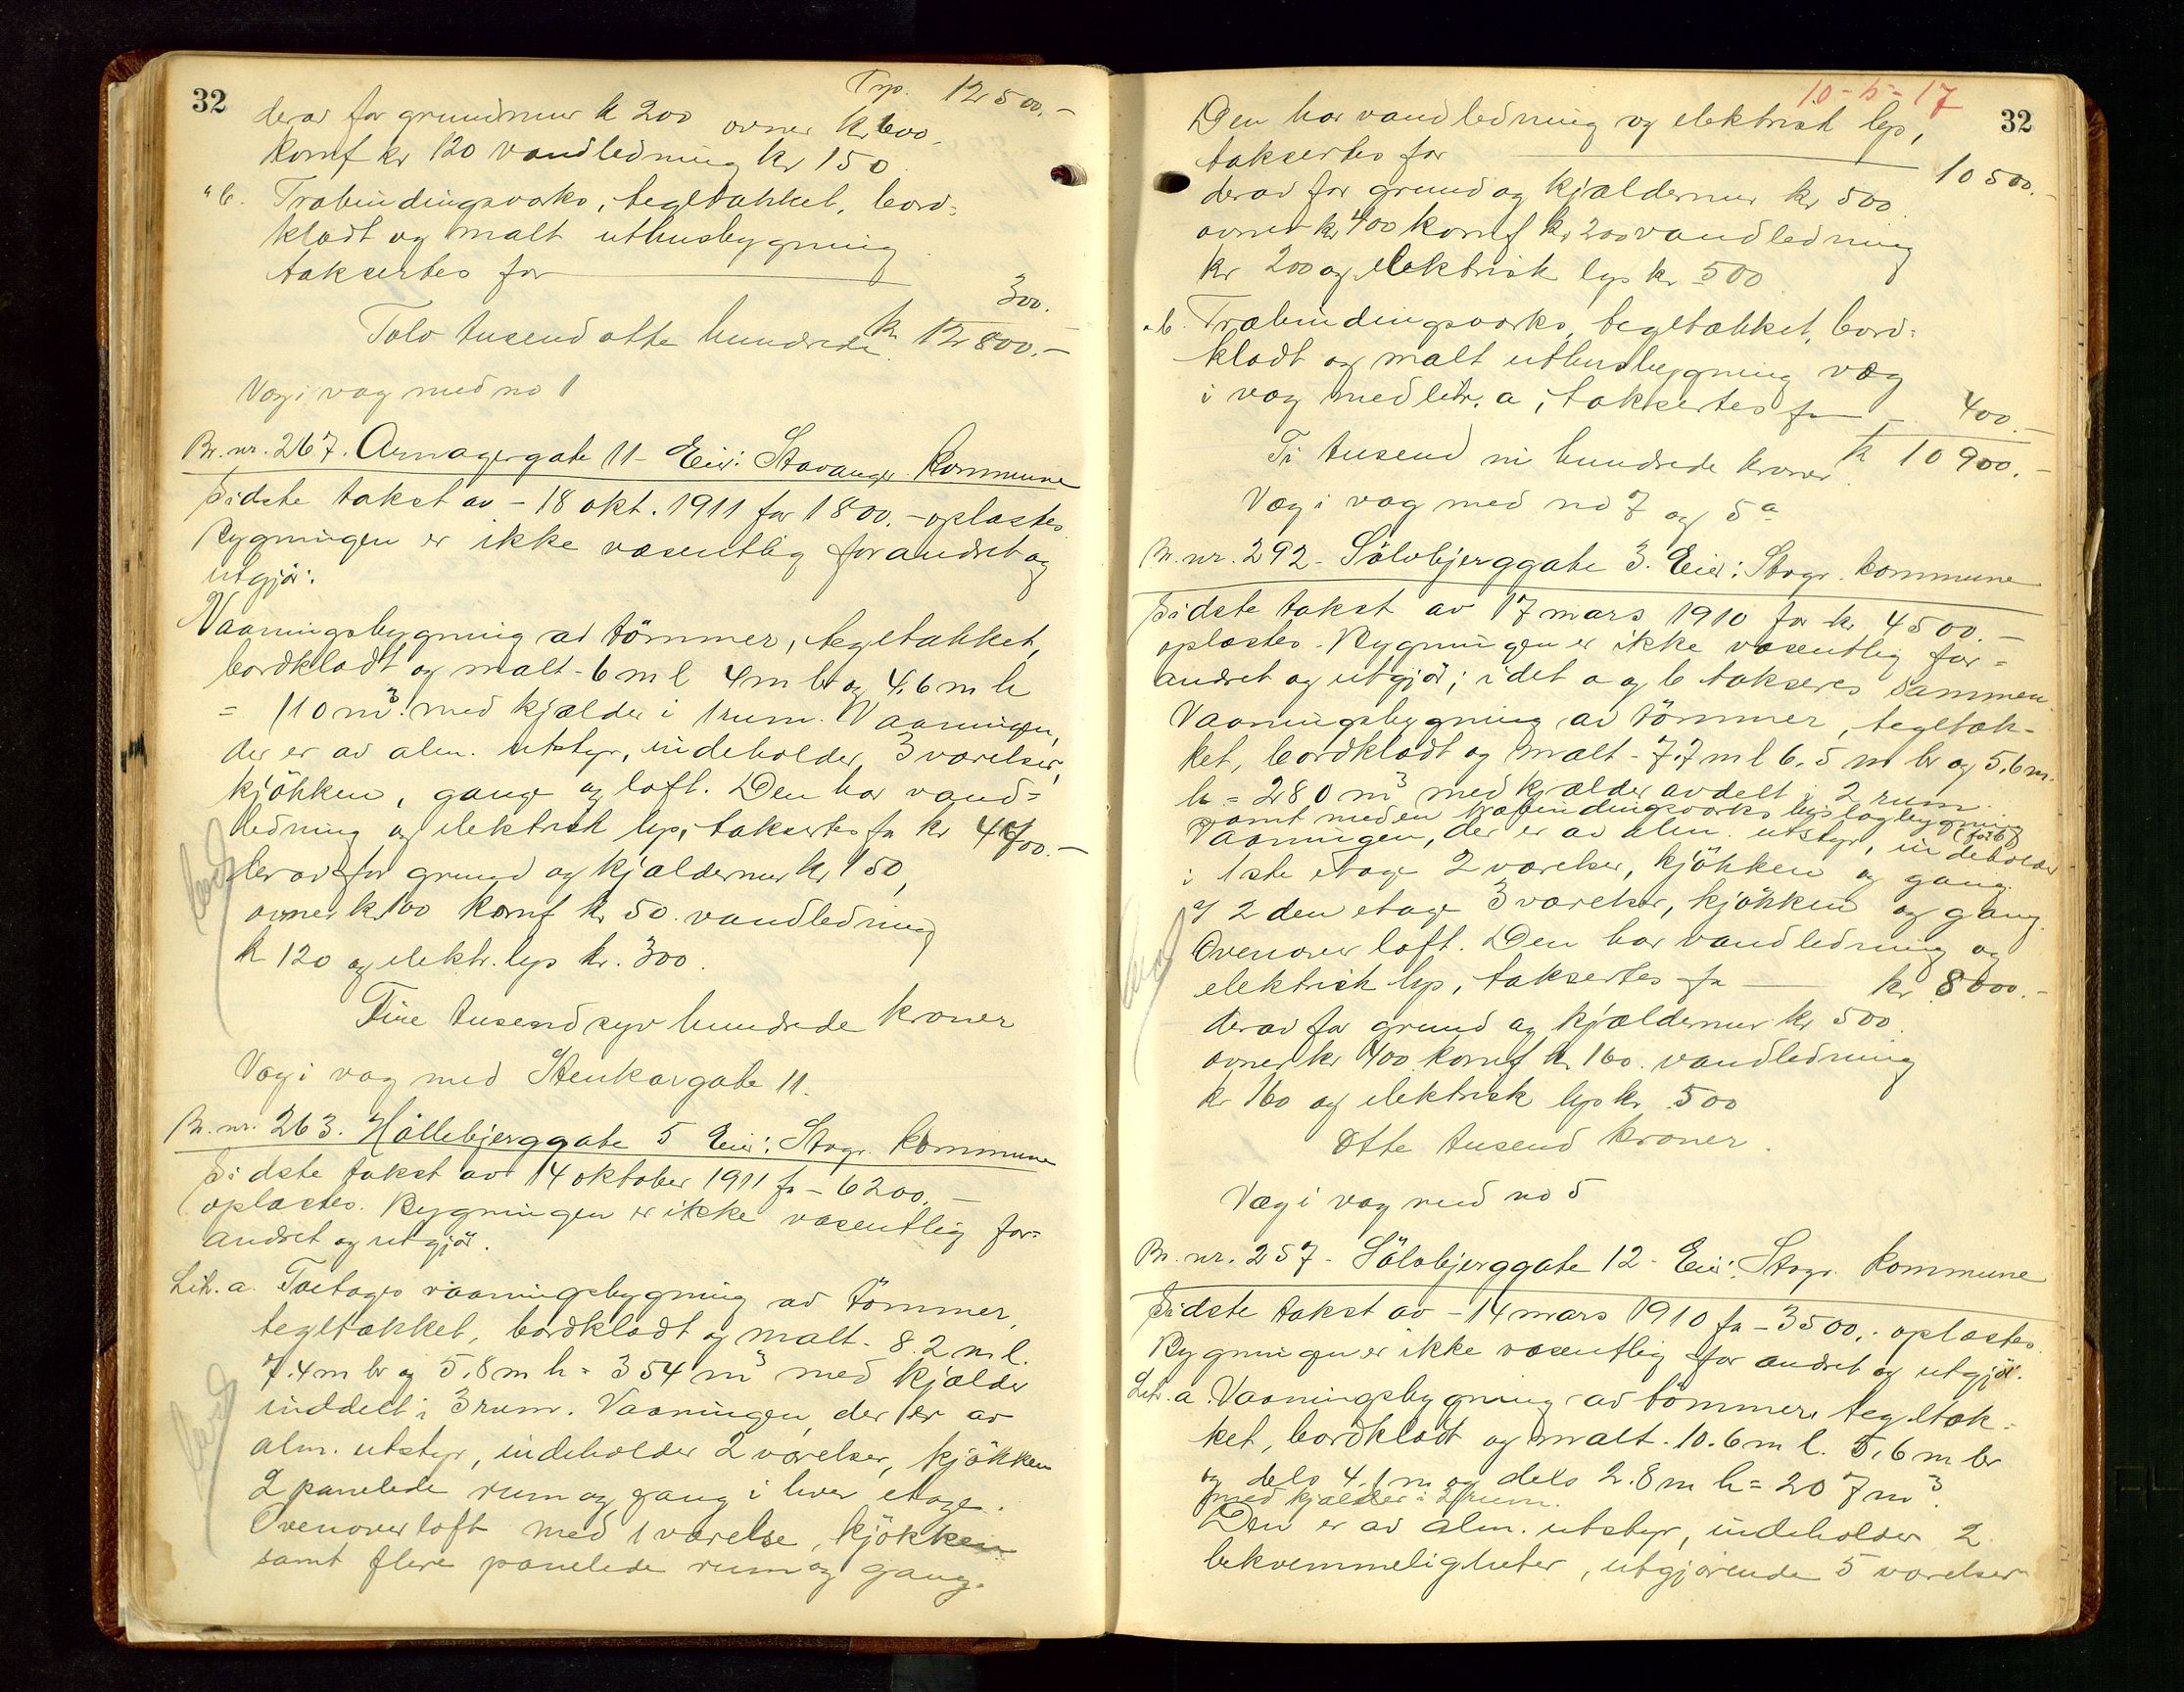 32
Trp. 12500.-
derav for grundmur k 200 ovner kr 600.
komf kr 120 vandledning kr 150
" b. Træbindingsværks, tegltækket, bord-
klædt og malt uthusbygning
taksertes for 300.
Tolv tusend otte hundrede. kr 12800.-
Væg i væg med no 1
Br. nr. 267. Armagergate 11 - Eier: Stavanger Kommune
Sidste takst av - 18 okt. 1911 for 1800.- oplæstes.
Bygningen er ikke væsentlig forandret og
utgjør:
Vaaningsbygning av tömmer, tegltækket,
bordklædt og malt - 6 m l 4 m br og 4.6 m h
= 110 m³. med kjælder i 1 rum. Vaaningen,
der er av alm. utstyr, indeholder 3 værelser,
kjökken, gange og loft. Den har vand-
ledning og elektrisk lys, taksertes for kr 4700.-
derav for grund og kjældermur kr 150,
ovner kr 100 komf kr 50. vandledning
kr 120 og elektr. lys kr. 300.
Fire tusend syv hundrede kroner
Væg i væg med Stenkargate 11.
Br. nr. 263. Hållebjerggate 5 Eier: Stvgr. Kommune
Sidste takst av 14 oktober 1911 for - 6200.-
oplæstes. Bygningen er ikke væsentlig for-
andret og utgjör.
Lit. a. Toetages vaaningsbygning av tömmer,
tegltækket, bordklædt og malt - 8.2 m l.
7.4 m br og 5.8 m h = 354 m³ med kjælder
inddelt i 3 rum. Vaaningen, der er av
alm. utstyr, indeholder 2 værelser, kjökken
2 panelede rum og gang i hver etage.
Ovenover loft med 1 værelse, kjökken
samt flere panelede rum og gang.
10-5-17
32
Den har vandledning og elektrisk lys,
taksertes for 10500.-
derav for grund og kjældermur kr 500
ovner kr 400 komf kr 200 vandledning
kr 200 og elektrisk lys kr 500
" b. Træbindingsværks, tegltækket, bord-
klædt og malt uthusbygning væg
i væg med litr. a, taksertes for 400.-
Ti tusend ni hundrede kroner kr 10900.-
Væg i væg med no 7 og 5a
Br. nr. 292 - Sölvbjerggate 3. Eier: Stvgr. Kommune
Sidste takst av 17 mars 1910 for kr 4500.-
oplæstes. Bygningen er ikke væsentlig for-
andret og utgjör; idet a og b takseres sammen.
Vaaningsbygning av tömmer, tegltæk-
ket, bordklædt og malt - 7.7 m l 6.5 m br og 5.6 m
h = 280 m³ med kjælder avdelt i 2 rum.
samt med en træbindingsværks bislagbygning (før b)
Vaaningen, der er av alm. utstyr, indeholder
i 1ste etage 2 værelser, kjökken og gang.
I 2den etage 3 værelser, kjökken og gang.
Ovenover loft. Den har vandledning og
elektrisk lys, taksertes for kr 8000.-
derav for grund og kjældermur kr 500.
ovner kr 400 komf kr 160. vandledning
kr 160 og elektrisk lys kr 500
Otte tusend kroner.
Væg i væg med no 5
Br. nr. 257 - Sölvbjerggate 12 - Eier: Stvgr. Kommune
Sidste takst av - 14 mars 1910 for - 3500.- oplæstes.
Bygningen er ikke væsentlig forandret og utgjör.
Litr. a. Vaaningsbygning av tömmer, tegltæk-
ket, bordklædt og malt. 10.6 m l. 5.6 m br
og dels 4.1 m og dels 2.8 m h = 207 m³.
med kjælder i 2 rum.
Den er av alm. utstyr, indeholder 2
bekvemmeligheter, utgjørende 5 værelser